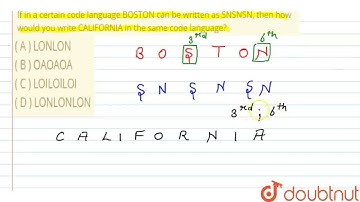 If in a certain code language BOSTON can be written as SNSNSN, then how
would you write CALIFORNIA in the same code language?
( A ) LONLON
( B ) OAOAOA
( C ) LOILOILOI
( D ) LONLONLON
3rd 6th
B O S T O N
S N S N S N
3rd ; 6th
C A L I F O R N I A
doubtnut